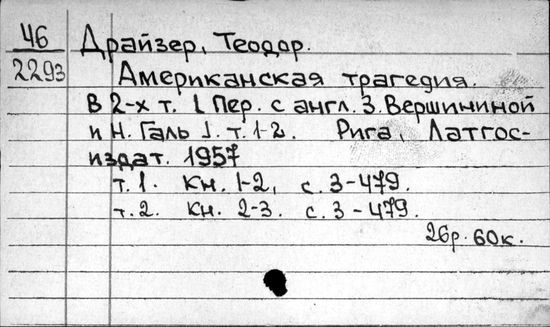 46
2293
Драйзер, Теодор.
Американская трагедия.
В 2-х т. [Пер. с англ. З. Вершининой
и Н. Галь]. т. 1-2. Рига, Латгос-
издат. 1957
т. 1. Кн. 1-2, с. 3-479.
т. 2. Кн. 2-3. с. 3-479.
26р. 60к.